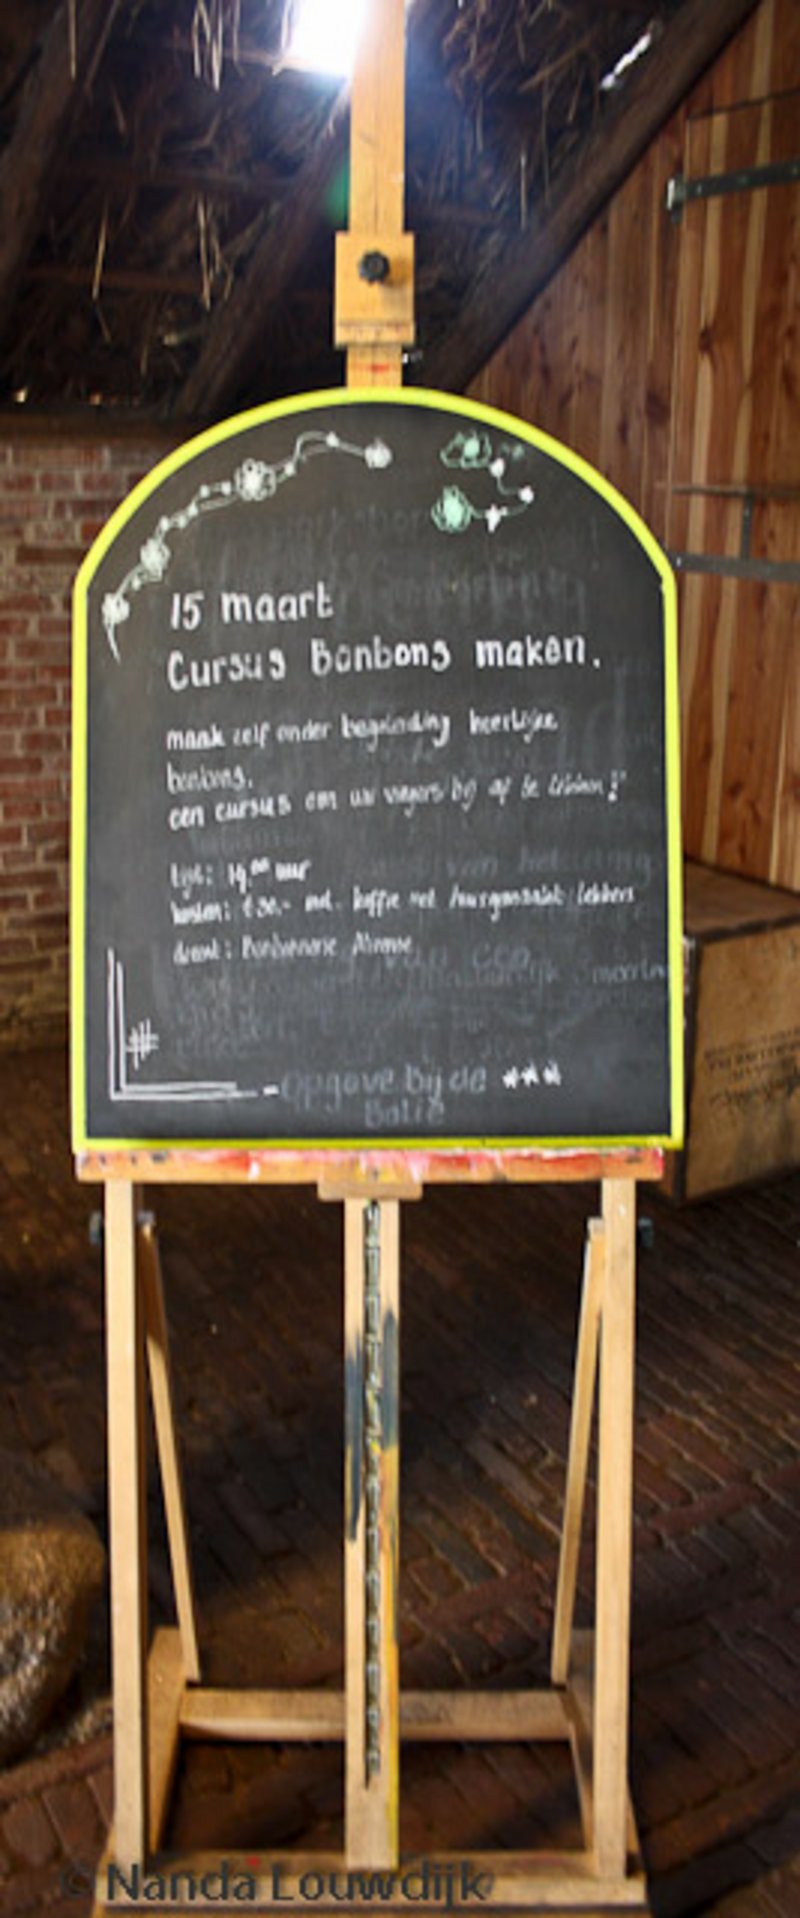 15 maart
Cursus Bonbons maken.
maak zelf onder begeleiding heerlijke
bonbons.
een cursus om uw vingers bij af te likken!
tijd: 19.00 uur
kosten: €30,- incl. koffie met huisgemaakt lekkers
docent: Bonbonnerie
-opgave bij de
Balie
© Nanda Louwdijk